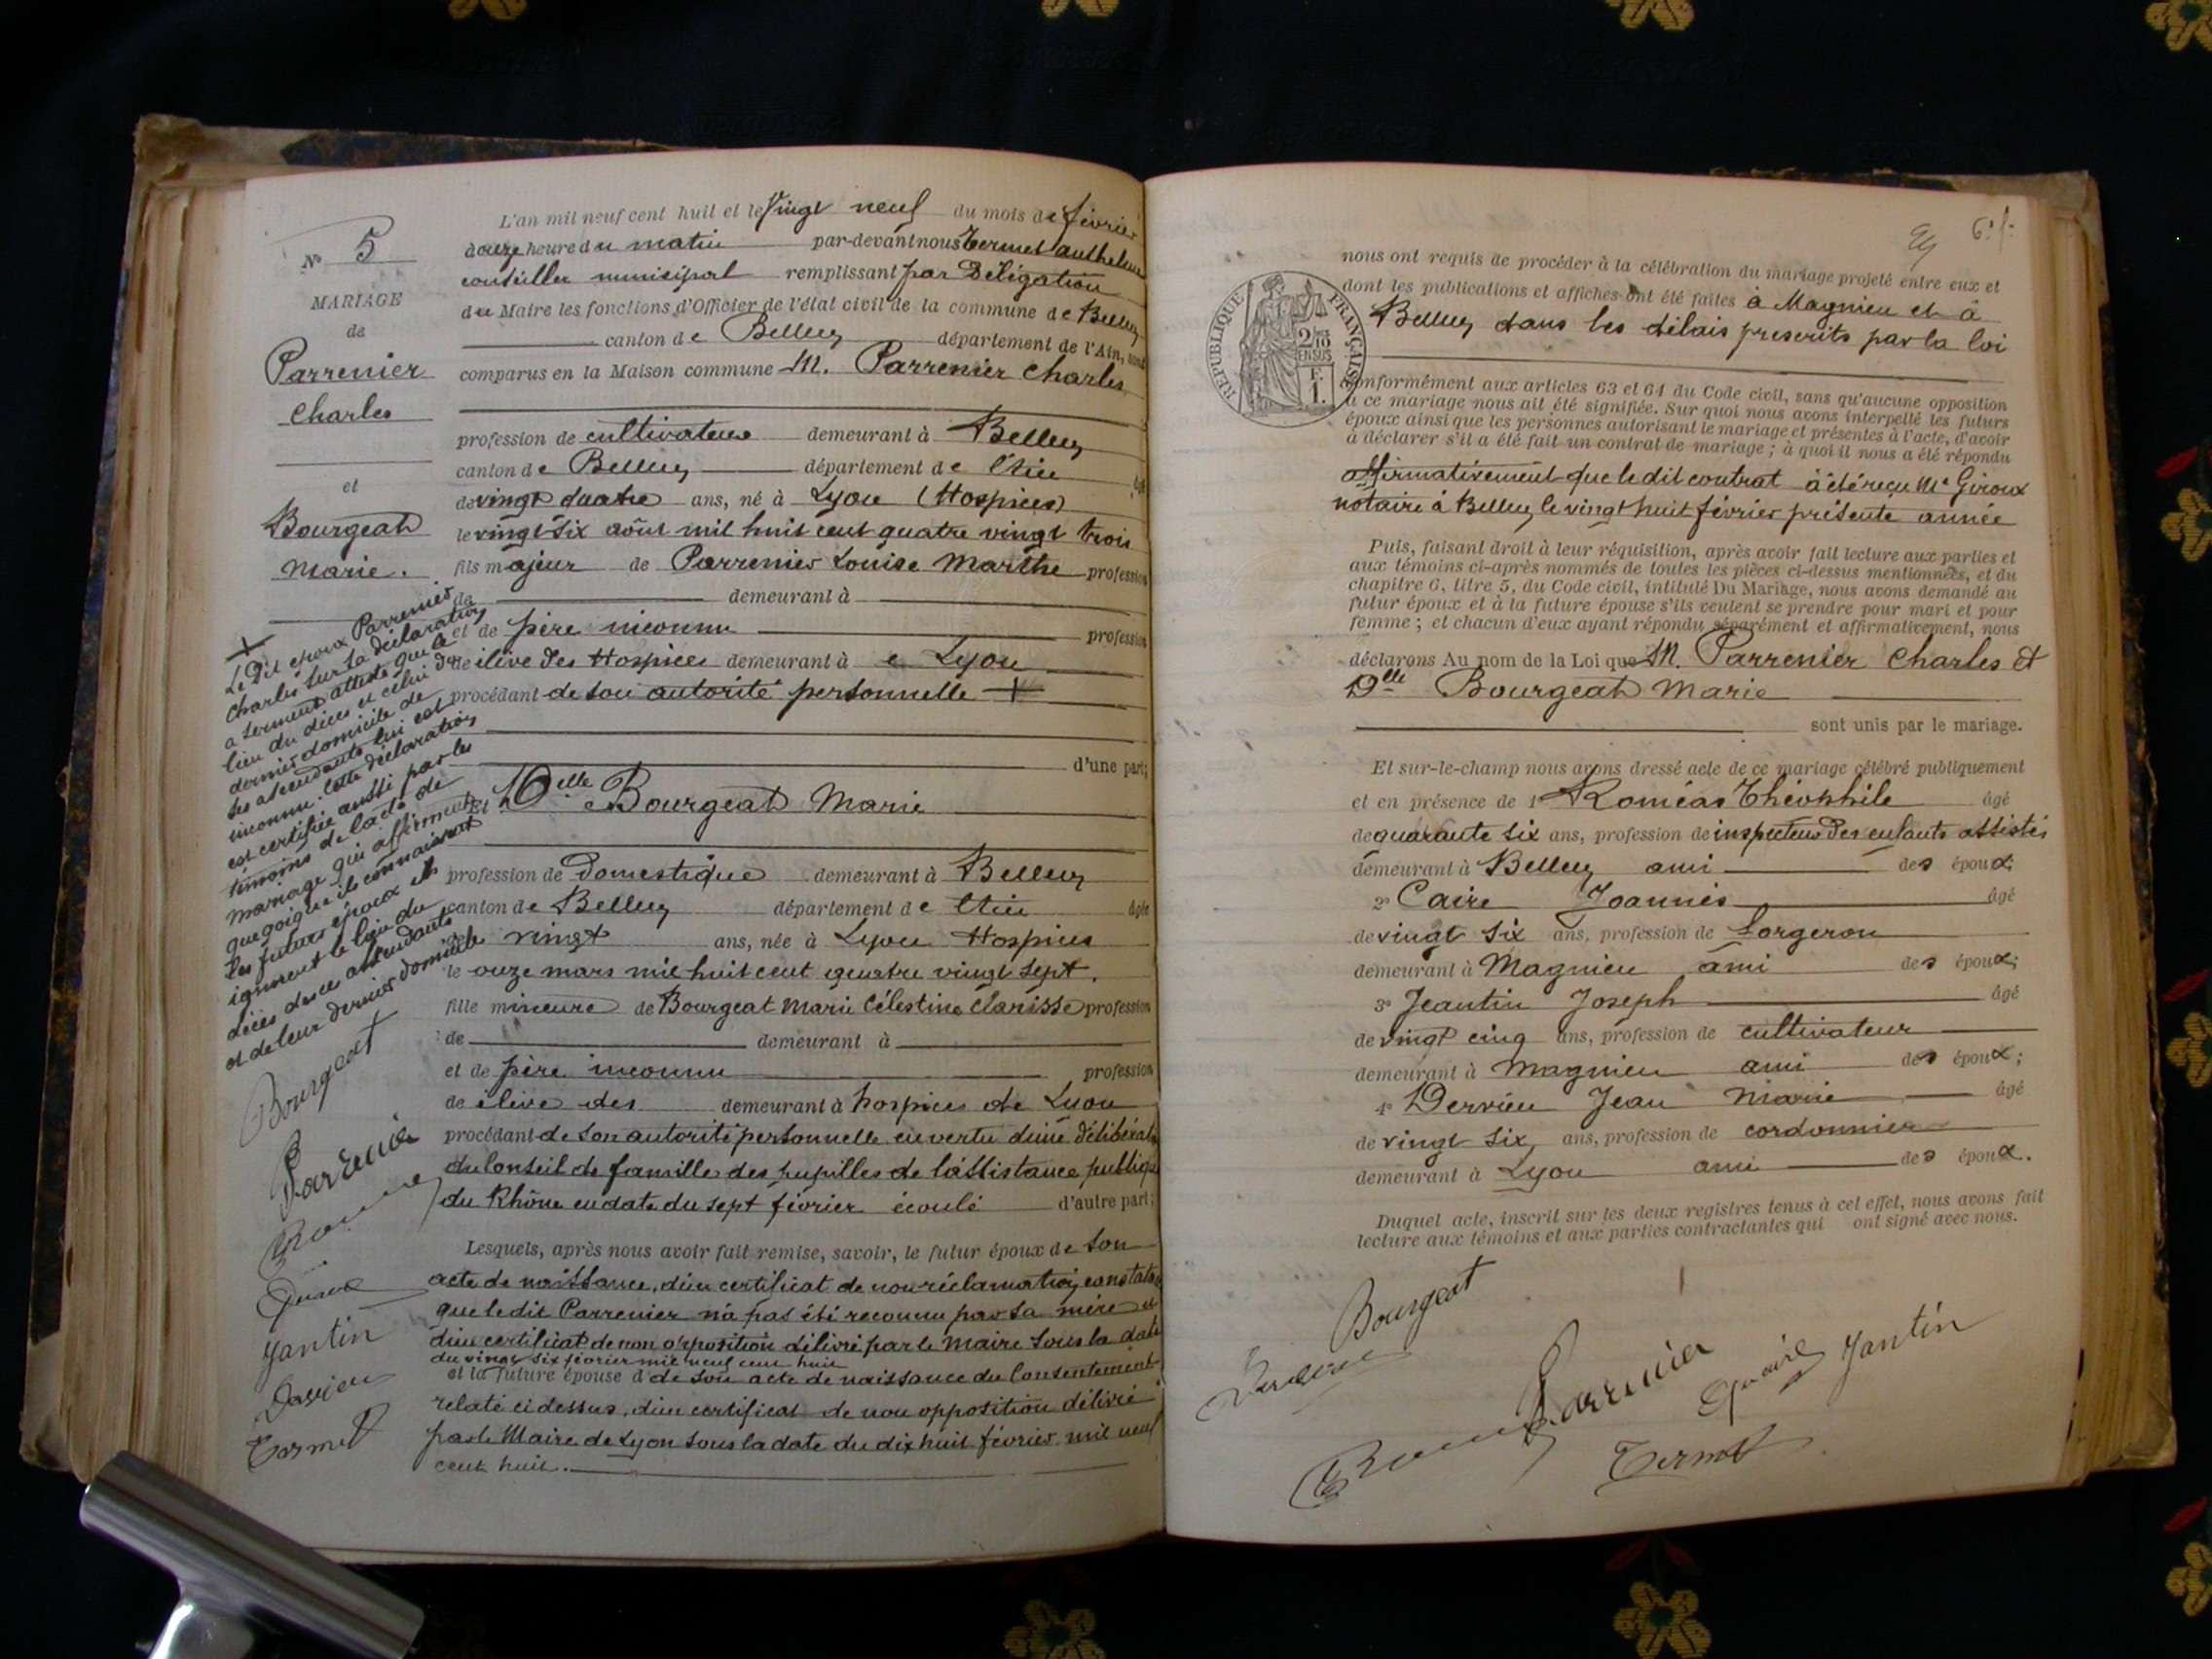 L'an mil neuf cent huit et le Vingt neuf du mois de février
à onze heure du matin par-devant nous Termet Anthelme
conseiller municipal remplissant par Délégation
du Maire les fonctions d'Officier de l'état civil de la commune de Belley
canton de Belley département de l'Ain, sont
comparus en la Maison commune M. Parrenier Charles
profession de cultivateur demeurant à Belley
canton de Belley département de l'Ain âgé
de vingt quatre ans, né à Lyon (Hospices)
le vingt six août mil huit cent quatre vingt trois
fils majeur de Parrenier Louise Marthe profession
de demeurant à
et de père inconnu profession
de élève des Hospices demeurant à e Lyon
procédant de son autorité personnelle +
d'une part;
Et Delle Bourgeat Marie
profession de Domestique demeurant à Belley
canton de Belley département de l'Ain âgée
de vingt ans, née à Lyon Hospices
le onze mars mil huit cent quatre vingt sept.
fille mineure de Bourgeat Marie Célestine Clarisse profession
de demeurant à
et de père inconnu profession
de élève des demeurant à hospices de Lyon
procédant de son autorité personnelle en vertu d'une délibération
du Conseil de famille des pupilles de l'Assistance publique
du Rhône en date du sept février écoulé d'autre part;
Lesquels, après nous avoir fait remise, savoir, le futur époux de son
acte de naissance, d'un certificat de non réclamation constatant
que le dit Parrenier n'a pas été reconnu par sa mère et
d'un certificat de non opposition délivré par le Maire sous la date
du vingt six février mil neuf cent huit
et la future épouse d de son acte de naissance du Consentement
relaté ci dessus, d'un certificat de non opposition délivré
par le Maire de Lyon sous la date du dix huit février mil neuf
cent huit.
N° 5
MARIAGE
de
Parrenier
Charles
et
Bourgeat
Marie.
+
Le Dit époux Parrenier
Charles sur la déclaration
a serment atteste que le
lieu du décès et celui du
dernier domicile de
ses ascendants lui est
inconnu. Cette déclaration
est certifiée aussi par les
témoins de l'acte de
mariage qui affirment
que quoique ils connaissent
les futurs époux ils
ignorent le lieu du
décès des ascendants
et de leur dernier domicile
Bourgeat
Parrenier
Jantin
Dervieu
Termet
6./.
nous ont requis de procéder à la célébration du mariage projeté entre eux et
dont les publications et affiches ont été faites à Magnieu et à
Belley dans les délais prescrits par la loi
RÉPUBLIQUE FRANÇAISE
2/10
EN SUS
F.
1.
conformément aux articles 63 et 64 du Code civil, sans qu'aucune opposition
à ce mariage nous ait été signifiée. Sur quoi nous avons interpellé les futurs
époux ainsi que les personnes autorisant le mariage et présentes à l'acte, d'avoir
à déclarer s'il a été fait un contrat de mariage ; à quoi il nous a été répondu
affirmativement que le dit contrat à été reçu Me Giroux
notaire à Belley le vingt huit février présente année
Puis, faisant droit à leur réquisition, après avoir fait lecture aux parties et
aux témoins ci-après nommés de toutes les pièces ci-dessus mentionnées, et du
chapitre 6, titre 5, du Code civil, intitulé Du Mariage, nous avons demandé au
futur époux et à la future épouse s'ils veulent se prendre pour mari et pour
femme ; et chacun d'eux ayant répondu séparément et affirmativement, nous
déclarons Au nom de la Loi que M. Parrenier Charles et
Delle Bourgeat Marie
sont unis par le mariage.
Et sur-le-champ nous avons dressé acte de ce mariage célébré publiquement
et en présence de 1° Roméas Théophile âgé
de quarante six ans, profession de inspecteur des enfants assistés
demeurant à Belley ami des époux;
2° Caire Joannès âgé
de vingt six ans, profession de forgeron
demeurant à Magnieu ami des époux;
3° Jeantin Joseph âgé
de vingt cinq ans, profession de cultivateur
demeurant à Magnieu ami des époux;
4° Dervieu Jean Marie âgé
de vingt six ans, profession de cordonnier
demeurant à Lyon ami des époux.
Duquel acte, inscrit sur les deux registres tenus à cet effet, nous avons fait
lecture aux témoins et aux parties contractantes qui ont signé avec nous.
Bourgeat
Parrenier
Jantin
Termet